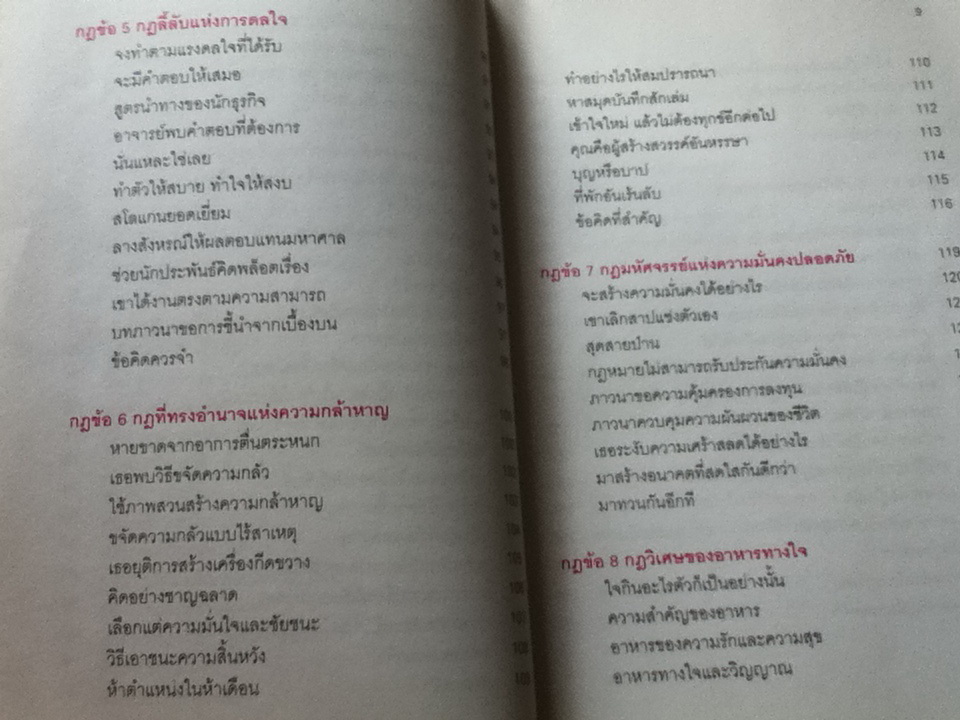 กฎข้อ 5 กฎลี้ลับแห่งการดลใจ
จงทำตามแรงดลใจที่ได้รับ
จะมีคำตอบให้เสมอ
สูตรนำทางของนักธุรกิจ
อาจารย์พบคำตอบที่ต้องการ
นั่นแหละใช่เลย
ทำตัวให้สบาย ทำใจให้สงบ
สโตแกนยอดเยี่ยม
ลางสังหรณ์ให้ผลตอบแทนมหาศาล
ช่วยนักประพันธ์คิดพล็อตเรื่อง
เขาได้งานตรงตามความสามารถ
บทภาวนาขอการชี้นำจากเบื้องบน
ข้อคิดควรจำ
กฎข้อ 6 กฎที่ทรงอำนาจแห่งความกล้าหาญ
หายขาดจากอาการตื่นตระหนก
เธอพบวิธีขจัดความกลัว
ใช้ภาพสวนสร้างความกล้าหาญ
ขจัดความกลัวแบบไร้สาเหตุ
เธอยุติการสร้างเครื่องกีดขวาง
คิดอย่างชาญฉลาด
เลือกแต่ความมั่นใจและชัยชนะ
วิธีเอาชนะความสิ้นหวัง
ห้าตำแหน่งในห้าเดือน
9
ทำอย่างไรให้สมปรารถนา 110
หาสมุดบันทึกสักเล่ม 111
เข้าใจใหม่ แล้วไม่ต้องทุกข์อีกต่อไป 112
คุณคือผู้สร้างสวรรค์อันหรรษา 113
บุญหรือบาป 114
ที่พักอันเร้นลับ 115
ข้อคิดที่สำคัญ 116
กฎข้อ 7 กฎมหัศจรรย์แห่งความมั่นคงปลอดภัย 119
จะสร้างความมั่นคงได้อย่างไร
เขาเลิกสาปแช่งตัวเอง
สุดสายป่าน
กฎหมายไม่สามารถรับประกันความมั่นคง
ภาวนาขอความคุ้มครองการลงทุน
ภาวนาควบคุมความผันผวนของชีวิต
เธอระงับความเศร้าสลดได้อย่างไร
มาสร้างอนาคตที่สดใสกันดีกว่า
มาทวนกันอีกที
กฎข้อ 8 กฎวิเศษของอาหารทางใจ
ใจกินอะไรตัวก็เป็นอย่างนั้น
ความสำคัญของอาหาร
อาหารของความรักและความสุข
อาหารทางใจและวิญญาณ